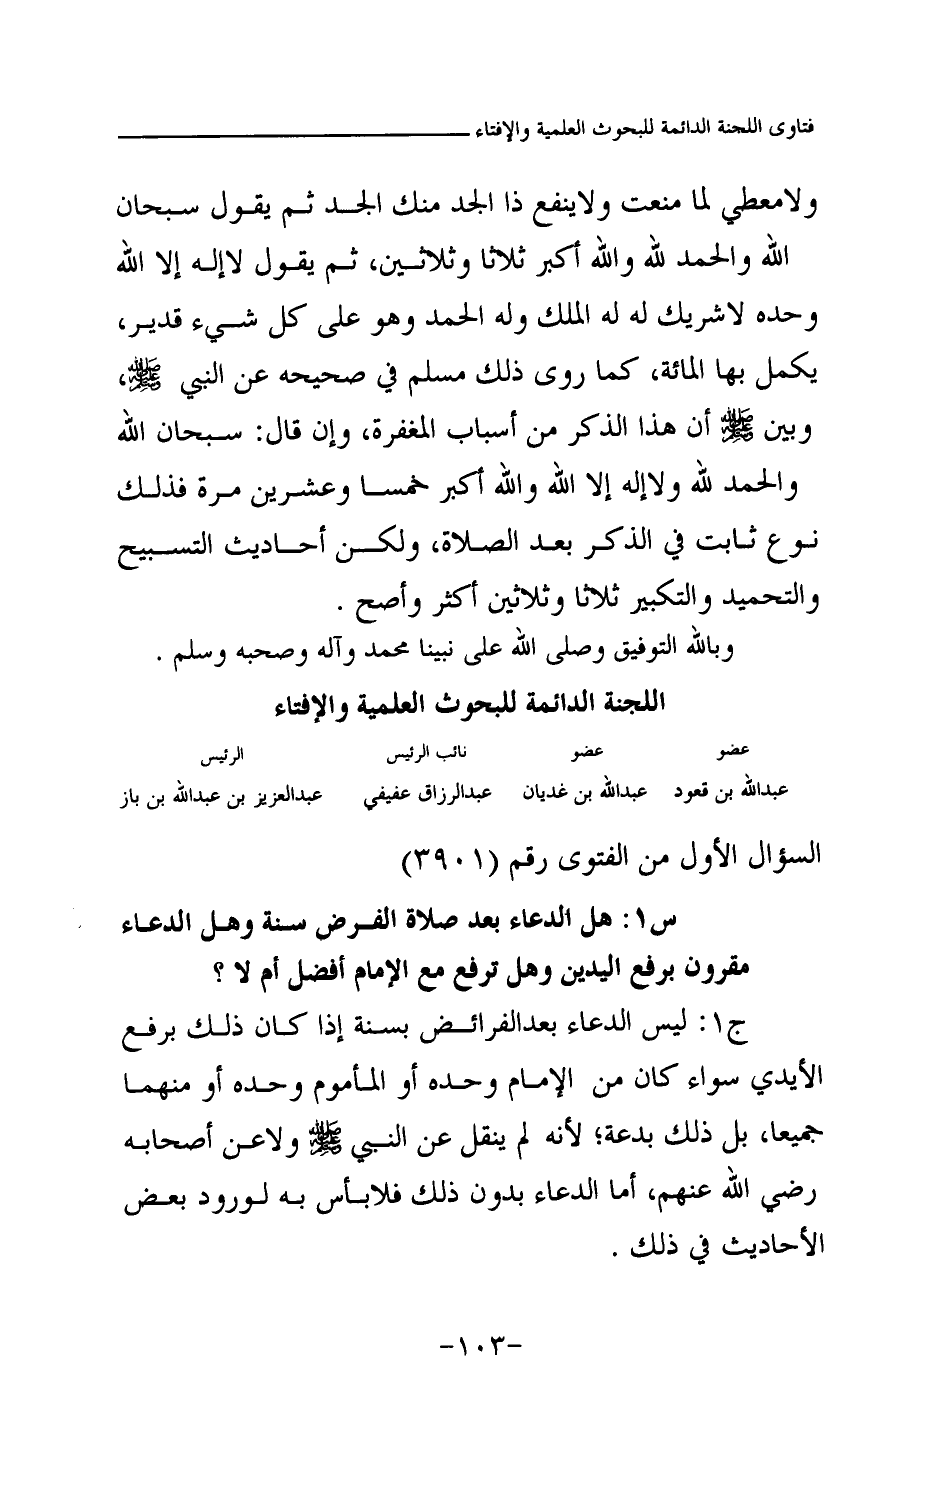 فتاوى اللجنة الدائمة للبحوث العلمية والإفتاء
ولامعطي لما منعت ولاينفع ذا الجد منك الجد ثم يقول سبحان
الله والحمد لله والله أكبر ثلاثا وثلاثين، ثم يقول لاإله إلا الله
وحده لاشريك له له الملك وله الحمد وهو على كل شيء قدير،
يكمل بها المائة، كما روى ذلك مسلم في صحيحه عن النبي ﷺ،
وبين ﷺ أن هذا الذكر من أسباب المغفرة، وإن قال: سبحان الله
والحمد لله ولاإله إلا الله والله أكبر خمسا وعشرين مرة فذلك
نوع ثابت في الذكر بعد الصلاة، ولكن أحاديث التسبيح
والتحميد والتكبير ثلاثا وثلاثين أكثر وأصح .
وبالله التوفيق وصلى الله على نبينا محمد وآله وصحبه وسلم .
اللجنة الدائمة للبحوث العلمية والإفتاء
عضو عضو نائب الرئيس الرئيس
عبدالله بن قعود عبدالله بن غديان عبدالرزاق عفيفي عبدالعزيز بن عبدالله بن باز
السؤال الأول من الفتوى رقم (٣٩٠١)
س١: هل الدعاء بعد صلاة الفرض سنة وهل الدعاء
مقرون برفع اليدين وهل ترفع مع الإمام أفضل أم لا ؟
ج١: ليس الدعاء بعدالفرائض بسنة إذا كان ذلك برفع
الأيدي سواء كان من الإمام وحده أو المأموم وحده أو منهما
جميعا، بل ذلك بدعة؛ لأنه لم ينقل عن النبي ﷺ ولاعن أصحابه
رضي الله عنهم، أما الدعاء بدون ذلك فلابأس به لورود بعض
الأحاديث في ذلك .
-١٠٣-